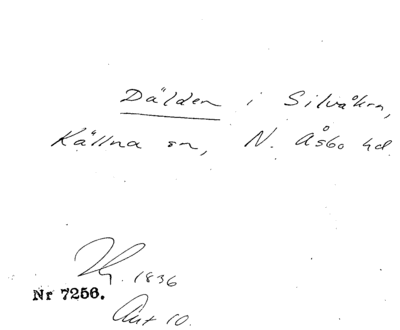 Dälden i Silvåkra,
Källna sn, N. Åsbo hd
Hy. 1836
Nr 7256.
Akt 10.